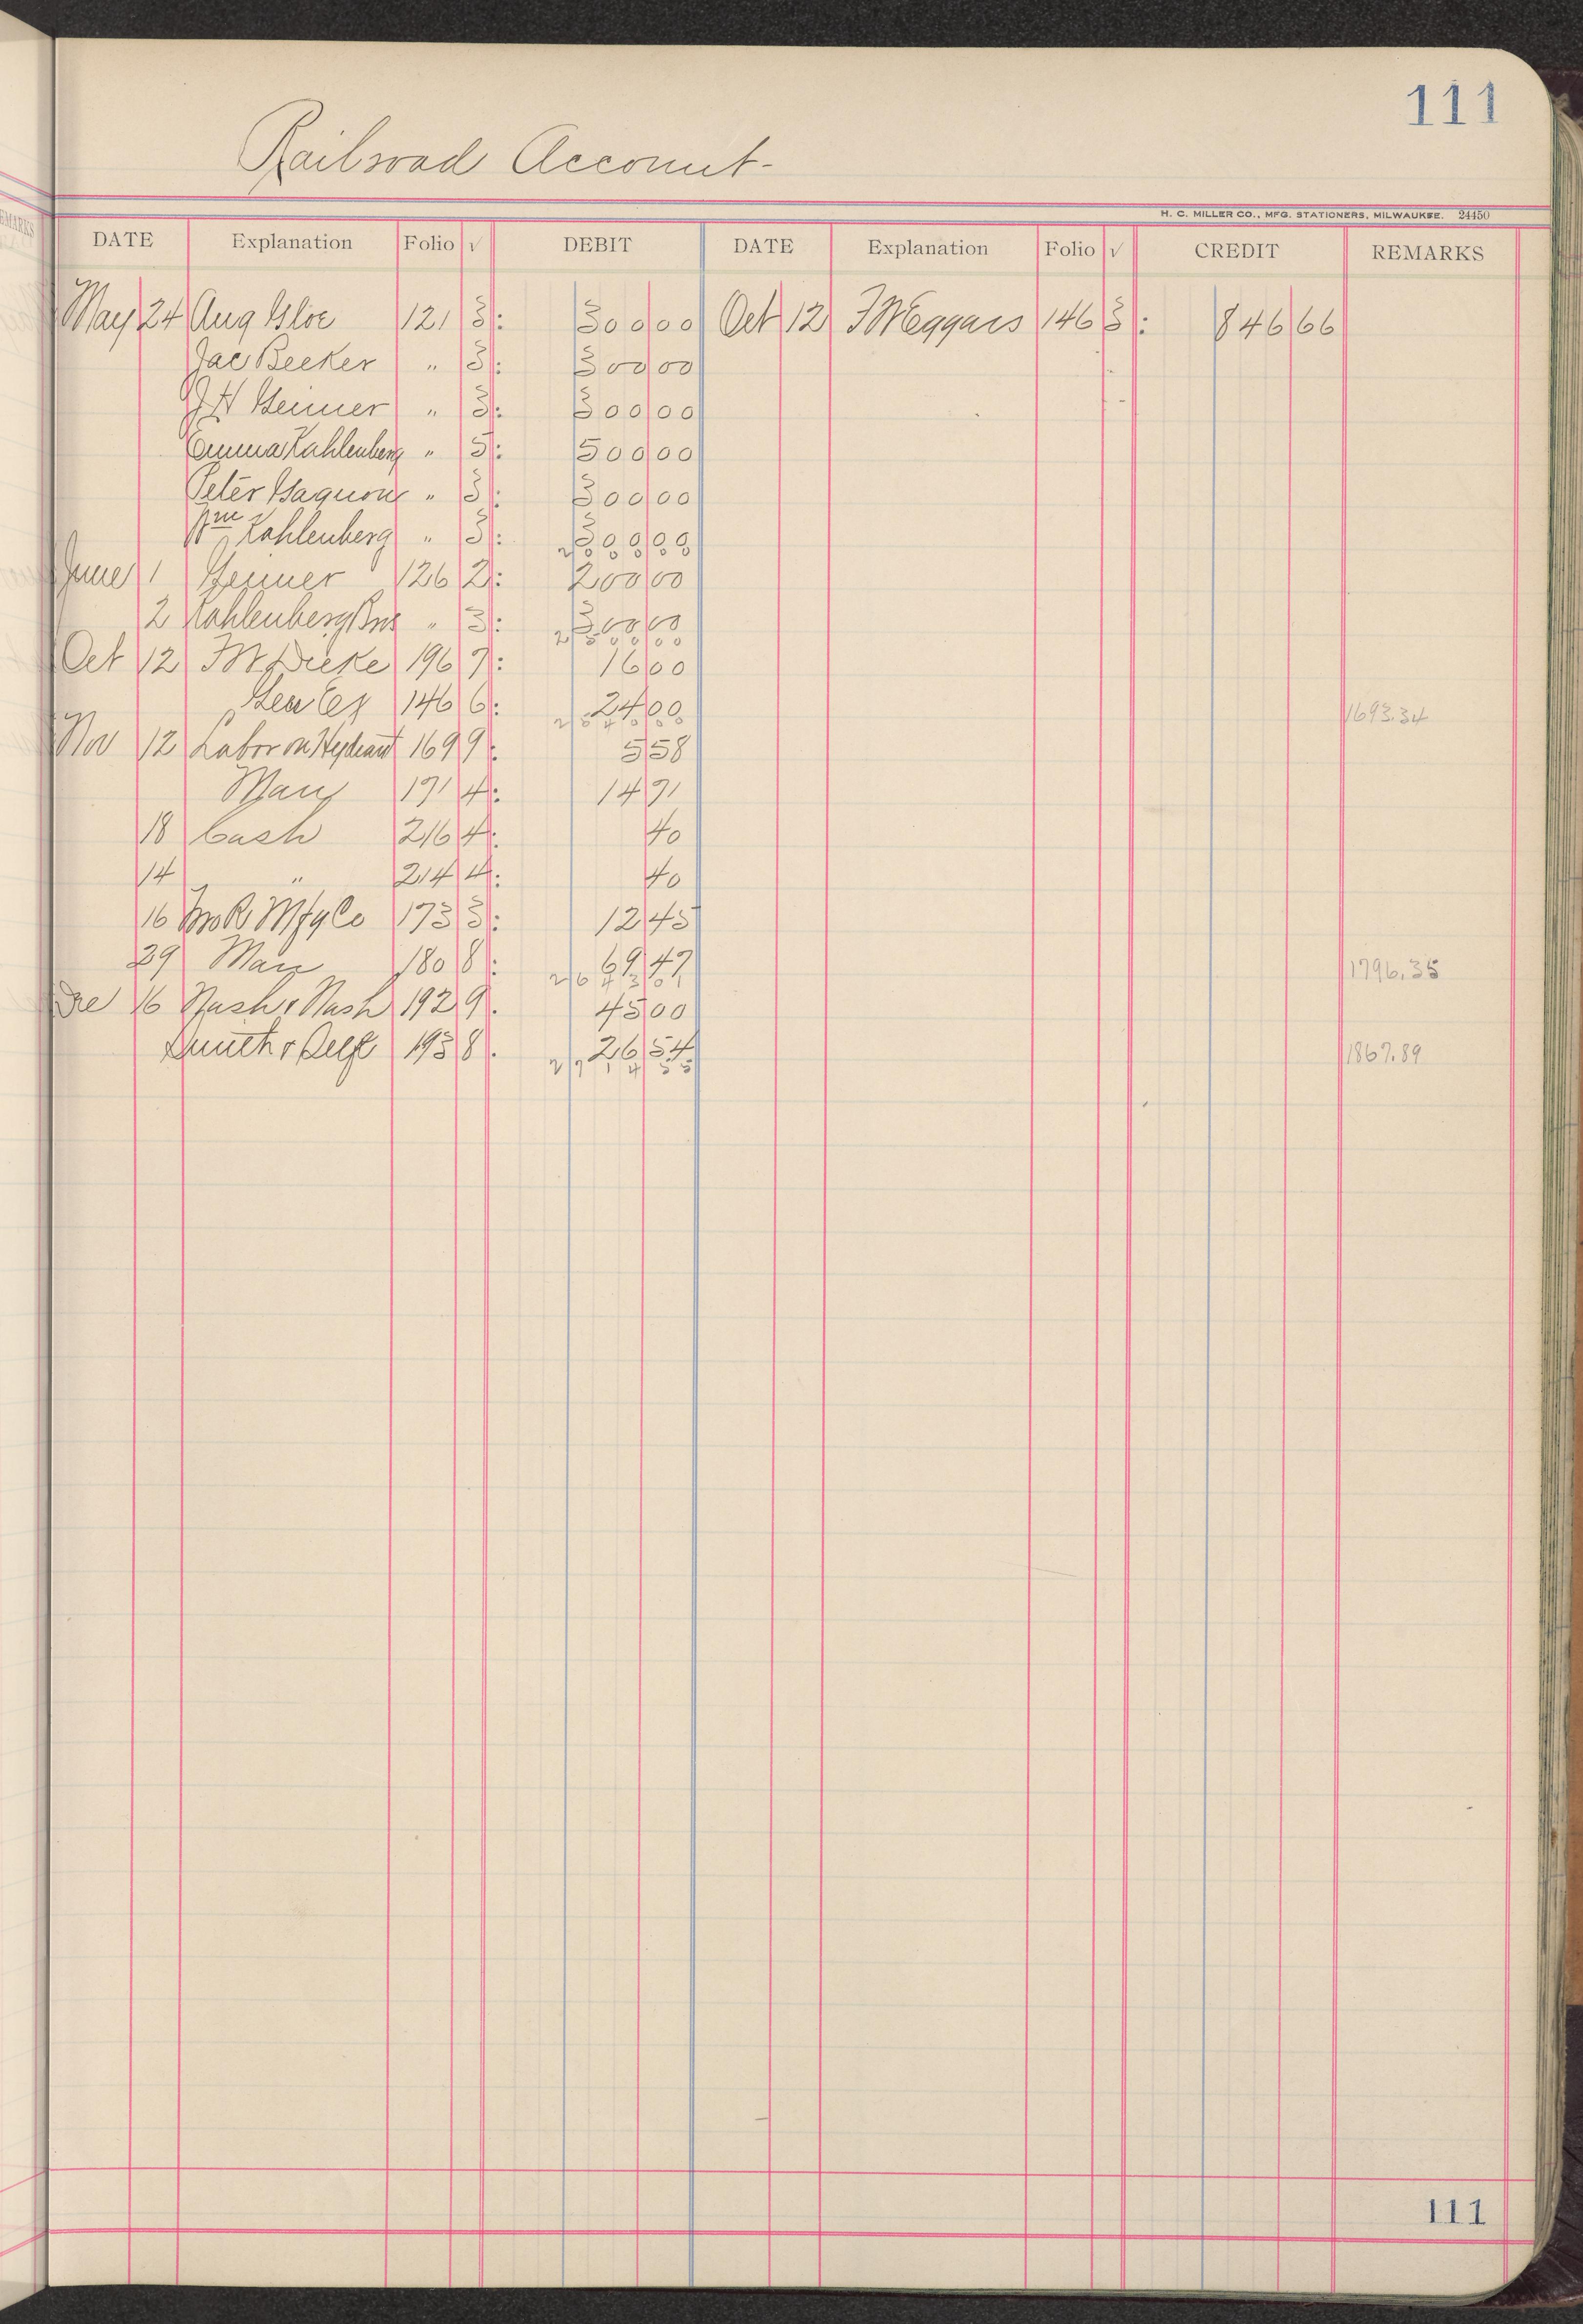 111
Railroad Account-
H. C. MILLER CO., MFG. STATIONERS, MILWAUKEE. 24450
DATE Explanation Folio √ DEBIT DATE Explanation Folio √ CREDIT REMARKS
May 24 Aug Gloe 121 3: 300 00 Oct 12 F W Eggars 146 3: 846 66
Jac Becker " 3: 300 00
J H Steiner " 3: 300 00
Emma Kahlenberg " 5: 500 00
Peter Gagnon " 3: 300 00
Wm Kahlenberg " 3: 300 00
2000 00
June 1 Steiner 126 2: 200 00
2 Kahlenberg Bros " 3: 300 00
2500 00
Oct 12 196 7: 16 00
Gen Ex 146 6: 24 00
2540 00 1693.34
Nov 12 Labor on Hydrant 169 9: 5 58
Man 171 4: 14 71
18 Cash 216 4: 40
14 " 214 4: 40
16 Mfg Co 173 3: 12 45
29 Man 180 8: 69 47
2643 01 1796.35
Dec 16 Nash & Nash 192 9. 45 00
195 8. 26 54
2714 55 1867.89
111